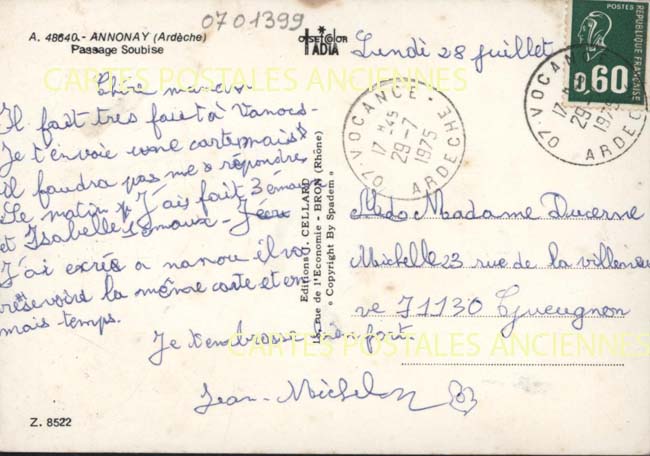 0701399
A. 48640.- ANNONAY (Ardèche)
Passage Soubise
OFFSET COLOR
IADIA
Lundi 28 juillet
POSTES
REPUBLIQUE FRANÇAISE
0,60
07 VOCANCE - ARDECHE
17 H 45
29-7
1975
07 VOCANCE
ARDECHE
17 H
29-7
1975
CARTES POSTALES ANCIENNES
Chère maman
Il fait très fait à Vanosc-
Je t'envoie une carte mais
il faudra pas me répondre
Le matin J'ai fait 3 émaux
et Isabelle émaux
J'ai exrée a nanou il va
reservoire la même carte et en
mais temps.
Je t'embrasse bien fort
Jean-Michel
Editions J. CELLARD
15, rue de l'Economie - BRON (Rhône)
« Copyright By Spadem »
Madame Ducerne
Michelle 23 rue de la villeneu
ve 71130 Gueugnon
CARTES POSTALES ANCIENNES
Z. 8522